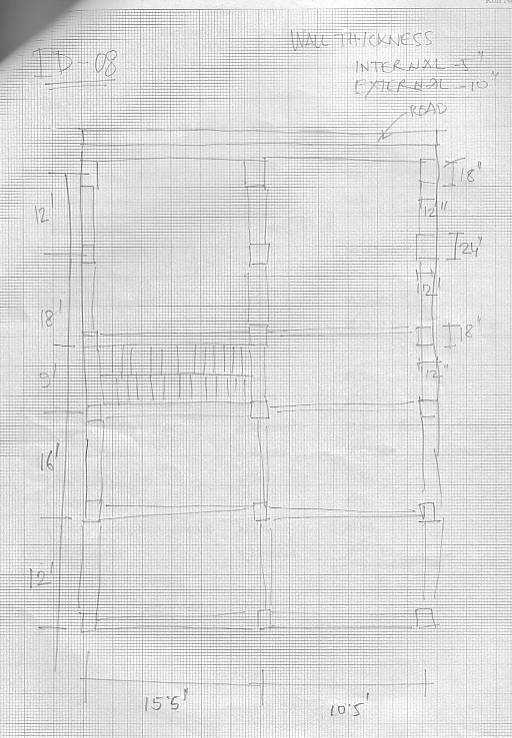 ID-08
WALL THICKNESS
INTERNAL -5"
EXTERNAL -10"
ROAD
18"
12'
12"
24"
12"
18'
18"
9'
12"
16'
12'
15'5"
10.5'